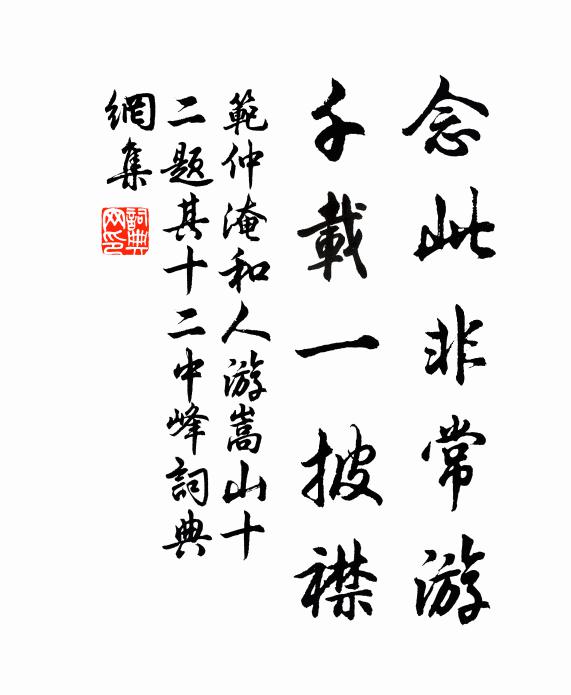 念此非常游
千載一披襟
範仲淹和人游嵩山十
二题其十二中峰詞典
網集
詞典网印